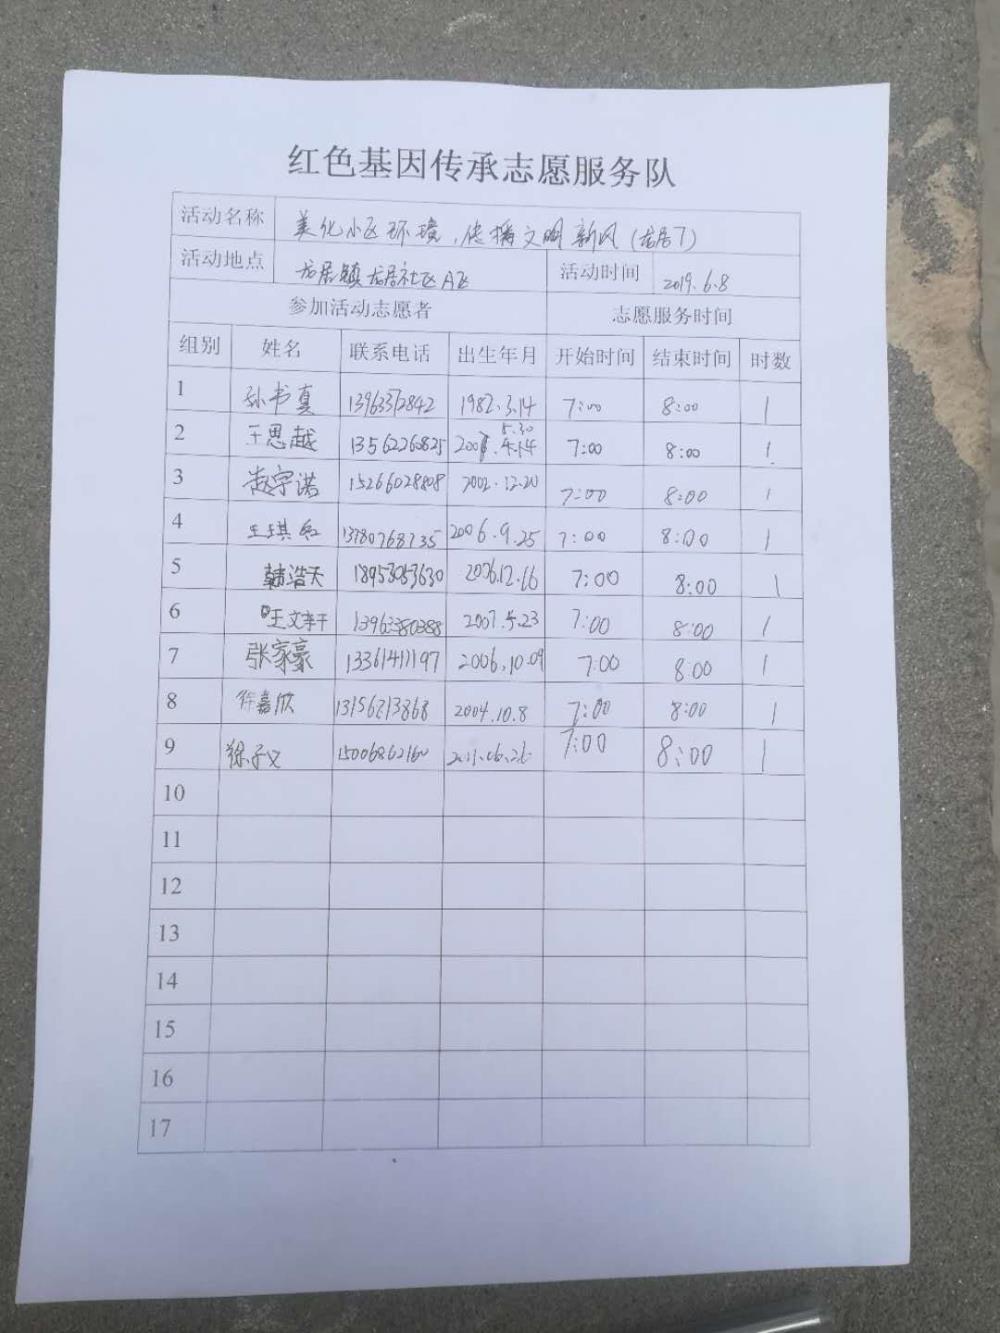 红色基因传承志愿服务队
活动名称 美化小区环境,传播文明新风(龙居丁)
活动地点 龙居镇龙居社区A区 活动时间 2019.6.8
参加活动志愿者 志愿服务时间
组别 姓名 联系电话 出生年月 开始时间 结束时间 时数
1 孙书真 13963372842 1982.3.14 7:00 8:00 1
2 王思越 13562260825 5.30 7:00 8:00 1
3 赵宇诺 15266028808 2002.12.20 7:00 8:00 1
4 王琪 13780768735 2006.9.25 7:00 8:00 1
5 韩浩天 18953053630 2006.12.16 7:00 8:00 1
6 王文轩 13963380388 2007.5.23 7:00 8:00 1
7 张家豪 13361411197 2006.10.09 7:00 8:00 1
8 徐嘉欣 13156213868 2004.10.8 7:00 8:00 1
9 徐子义 15006862160 2011.06.26 7:00 8:00 1
10
11
12
13
14
15
16
17